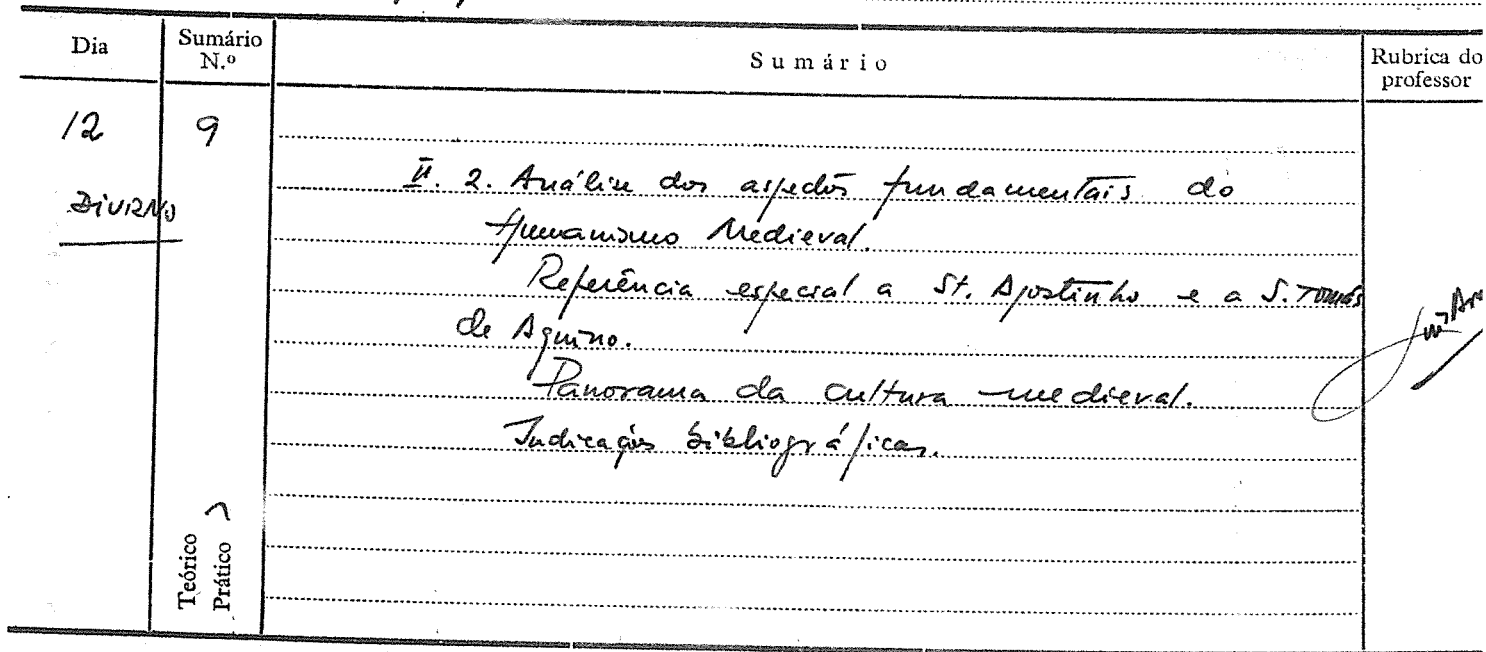 Dia
Sumário N.º
Sumário
Rubrica do professor
12
9
DIURNO
II. 2. Análise dos aspectos fundamentais do
Humanismo Medieval.
Referência especial a St. Agostinho e a S. Tomás
de Aquino.
Panorama da cultura medieval.
Indicações bibliográficas.
Teórico
Prático